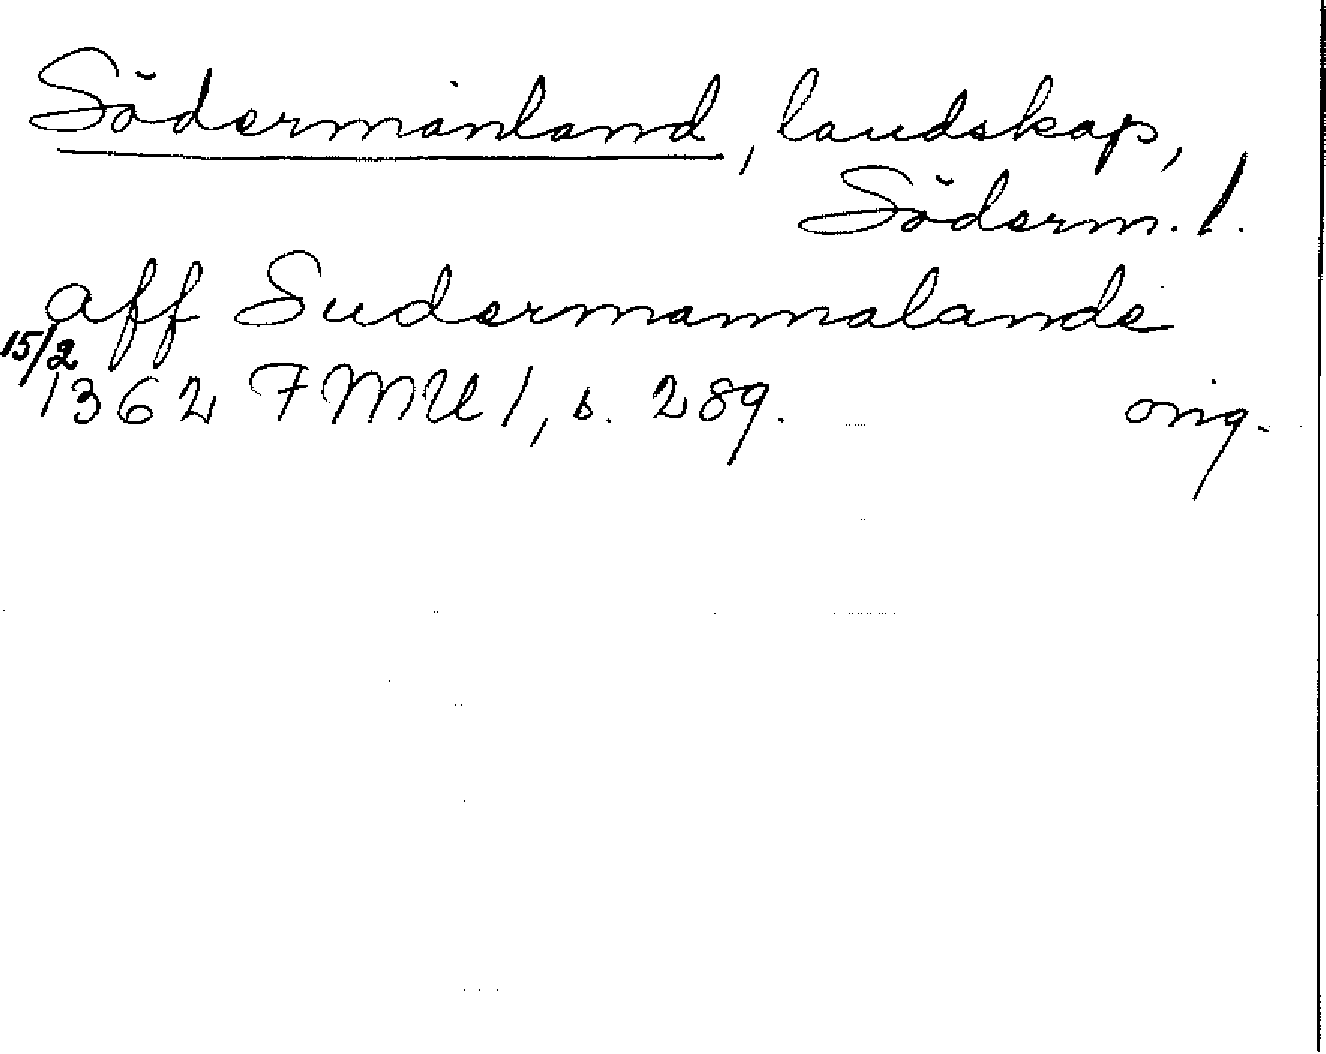 Södermanland, landskap,
Söderm. l.
aff Sudermannalande
15/2
1362 FMU 1, s. 289. orig.